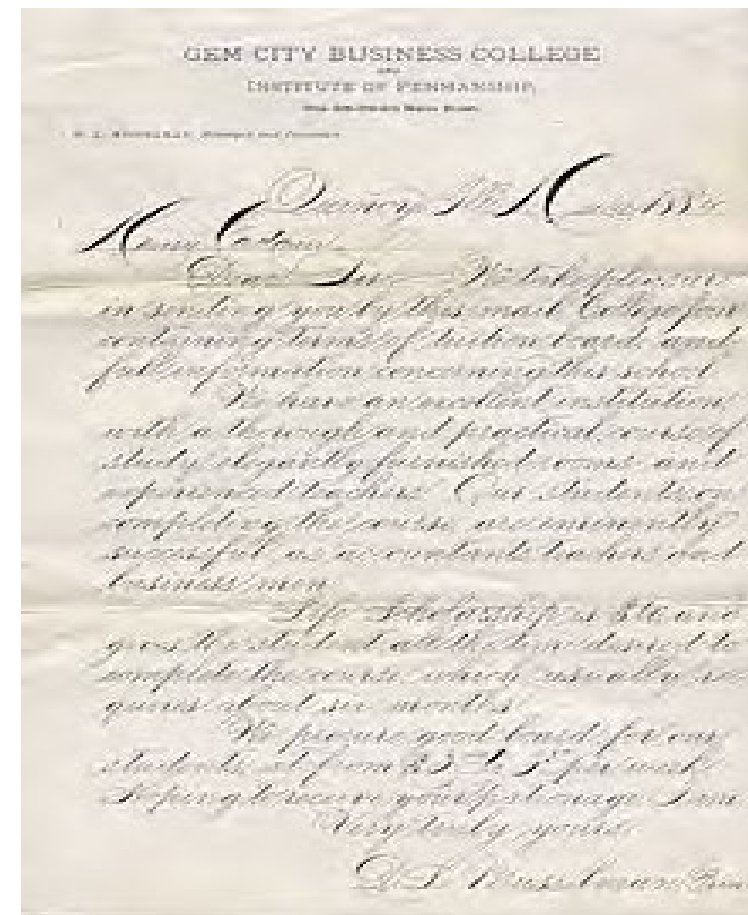 GEM CITY BUSINESS COLLEGE
AND
INSTITUTE OF PENMANSHIP,
D. L. MUSSELMAN, Principal and
Quincy, Ill.
Dear Sir We take pleasure
in sending you by this mail College
containing terms of tuition board and
full information concerning this school
We have an excellent institution
with a thorough and practical course of
study elegantly furnished rooms and
experienced teachers Our students on
completing the course are eminently
successful as accountants teachers and
business men
Life Scholarship is and
gives the student all the time desired to
complete the course which usually re
quires about six months
We procure good board for our
students at from per week
Hoping to receive your patronage I am
Very truly yours
D. L. Musselman Prin